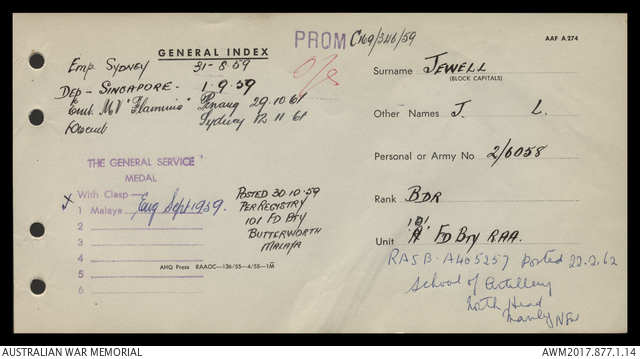 GENERAL INDEX
PROM C169/346/59
AAF A 274
Emp. SYDNEY 31-8-59
DEP - SINGAPORE - 1.9.59
Emb. MV "Flaminia" Penang 29.10.61
Disemb Sydney 12 11 61
O/S
THE GENERAL SERVICE
MEDAL
With Clasp —
x 1 Malaya Eng Sept 1959.
2
3
4
5
6
POSTED 30.10.59
PER REGISTRY
101 FD BTY
BUTTERWORTH
MALAYA
AHQ Press RAAOC—136/55—4/55—1M
Surname JEWELL
(BLOCK CAPITALS)
Other Names J. L.
Personal or Army No 2/6058
Rank BDR
101
Unit 'A' FD BTY RAA.
RASB-A405257 posted 22.2.62
School of Artillery
North Head
Manly NSW
AUSTRALIAN WAR MEMORIAL
AWM2017.877.1.14